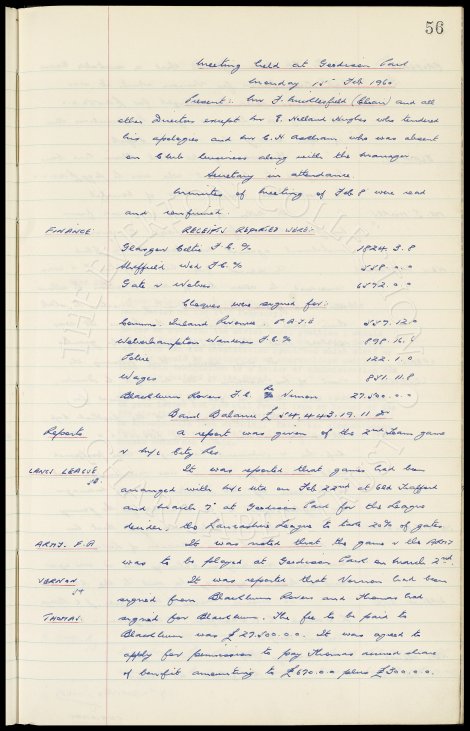 56
Meeting held at Goodison Park
Monday 15th Feb 1960
Present:- Mr F. Micklesfield (Chair) and all
other Directors except Mr E. Holland Hughes who tendered
his apologies and Mr C. H. Askham who was absent
on Club business along with the Manager.
Secretary in attendance.
Minutes of Meeting of Feb 8 were read
and confirmed.
FINANCE RECEIPTS REPORTED WERE:-
Glasgow Celtic F.C. % 1824.3.8
Sheffield Wed F.C. % 558.0.0
Gate v Wolves 6592.0.0
Cheques were signed for:-
Comms. Inland Revenue. P.A.Y.E 557.12.0
Wolverhampton Wanderers F.C. % 898.16.4
Police 122.1.0
Wages 851.11.8
Blackburn Rovers F.C. Re Vernon 27.500.0.0
Bank Balance £54.443.19.11
Reports. A report was given of the 2nd Team game
v M/c City Res
LANCS LEAGUE It was reported that games had been
arranged with M/c Utd on Feb 22nd at Old Trafford
and March 7th at Goodison Park for the League
decider, the Lancashire League to take 20% of gates.
ARMY. F.A It was noted that the game v the ARMY
was to be played at Goodison Park on March 2nd.
VERNON It was reported that Vernon had been
signed from Blackburn Rovers and Thomas had
THOMAS. signed for Blackburn. The fee to be paid to
Blackburn was £27.500.0.0. It was agreed to
apply for permission to pay Thomas accrued share
of benefit amounting to £690.0.0 plus £300.0.0.